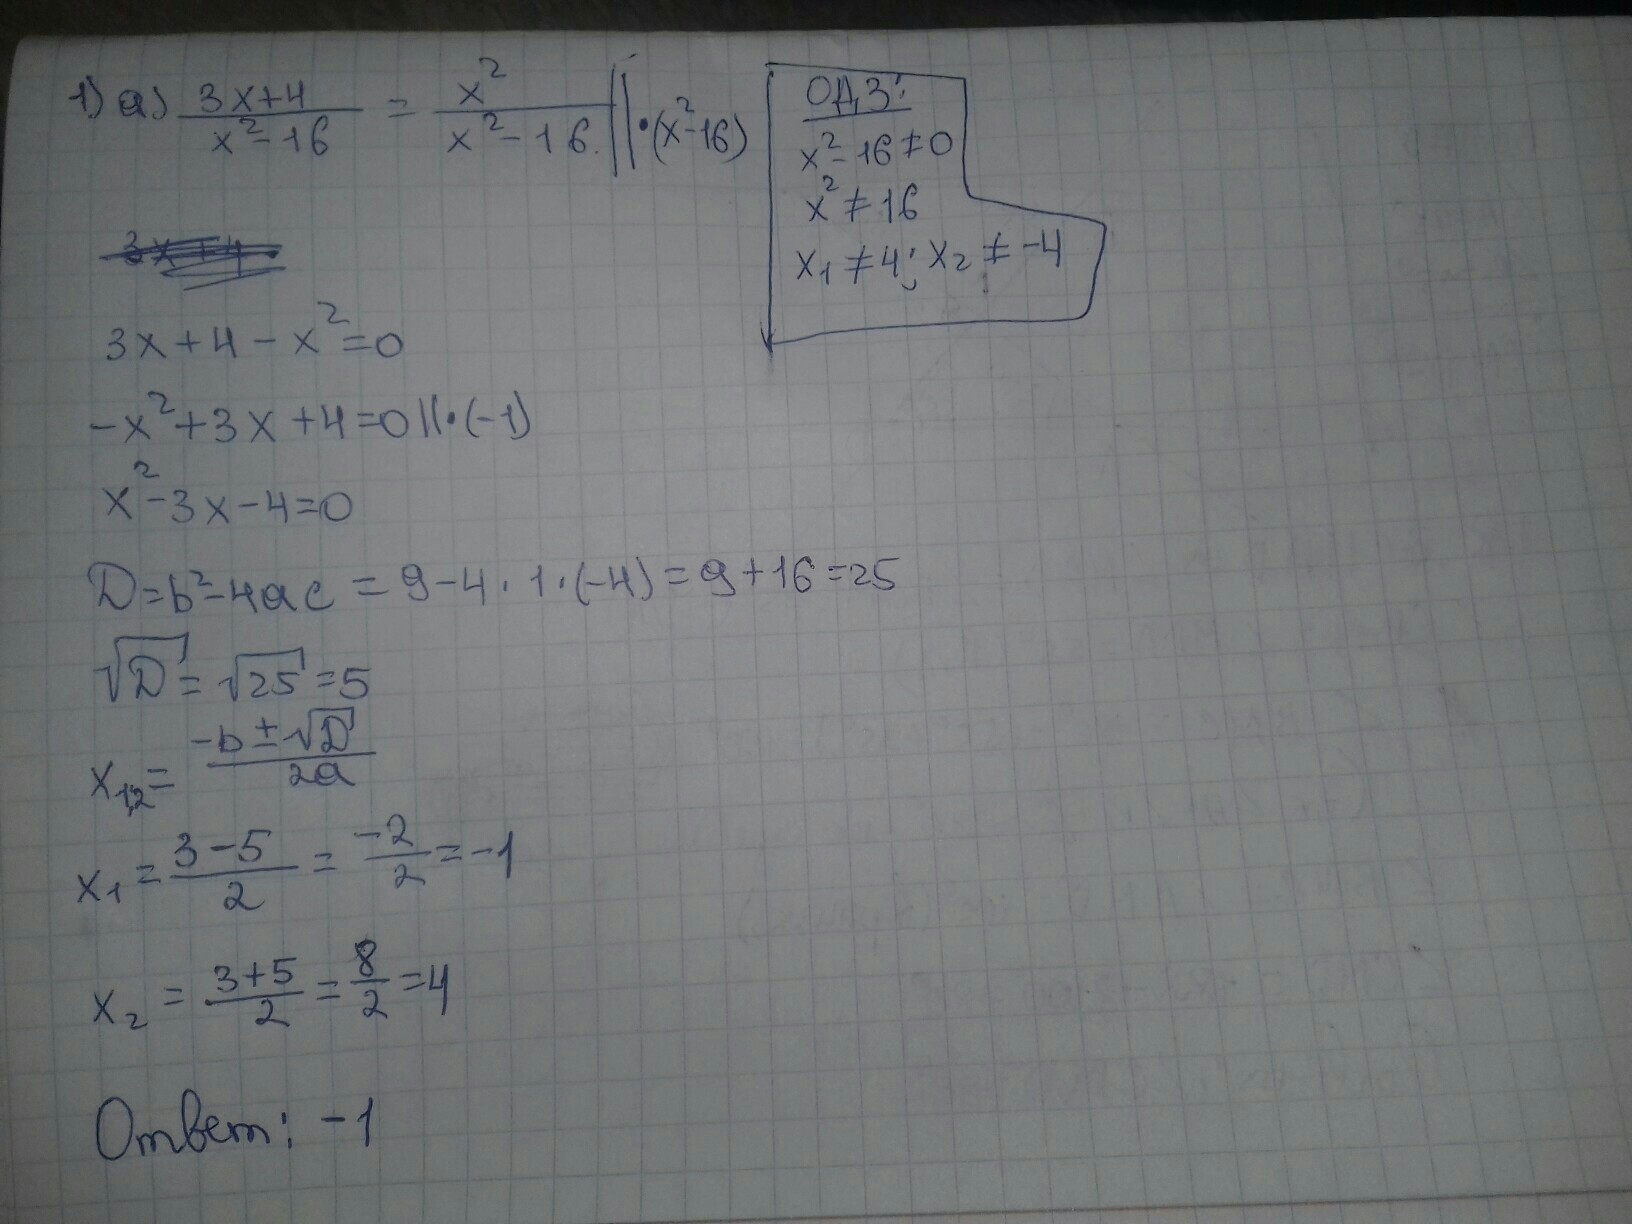 1) а) (3x+4)/(x²-16) = x²/(x²-16) || •(x²-16)
ОДЗ:
x²-16≠0
x²≠16
x₁≠4; x₂≠-4
3x+4-x²=0
-x²+3x+4=0||•(-1)
x²-3x-4=0
D=b²-4ac=9-4·1·(-4)=9+16=25
√D=√25=5
x₁,₂=(-b±√D)/(2a)
x₁=(3-5)/2=(-2)/2=-1
x₂=(3+5)/2=8/2=4
Ответ: -1